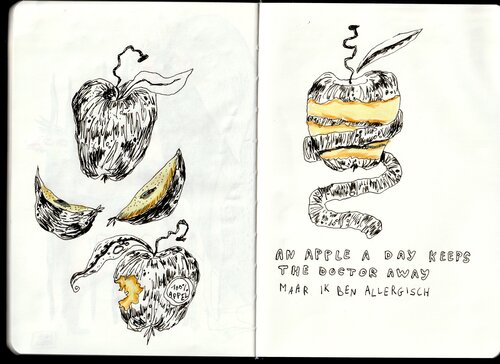 100%
APPEL
AN APPLE A DAY KEEPS
THE DOCTOR AWAY
MAAR IK BEN ALLERGISCH